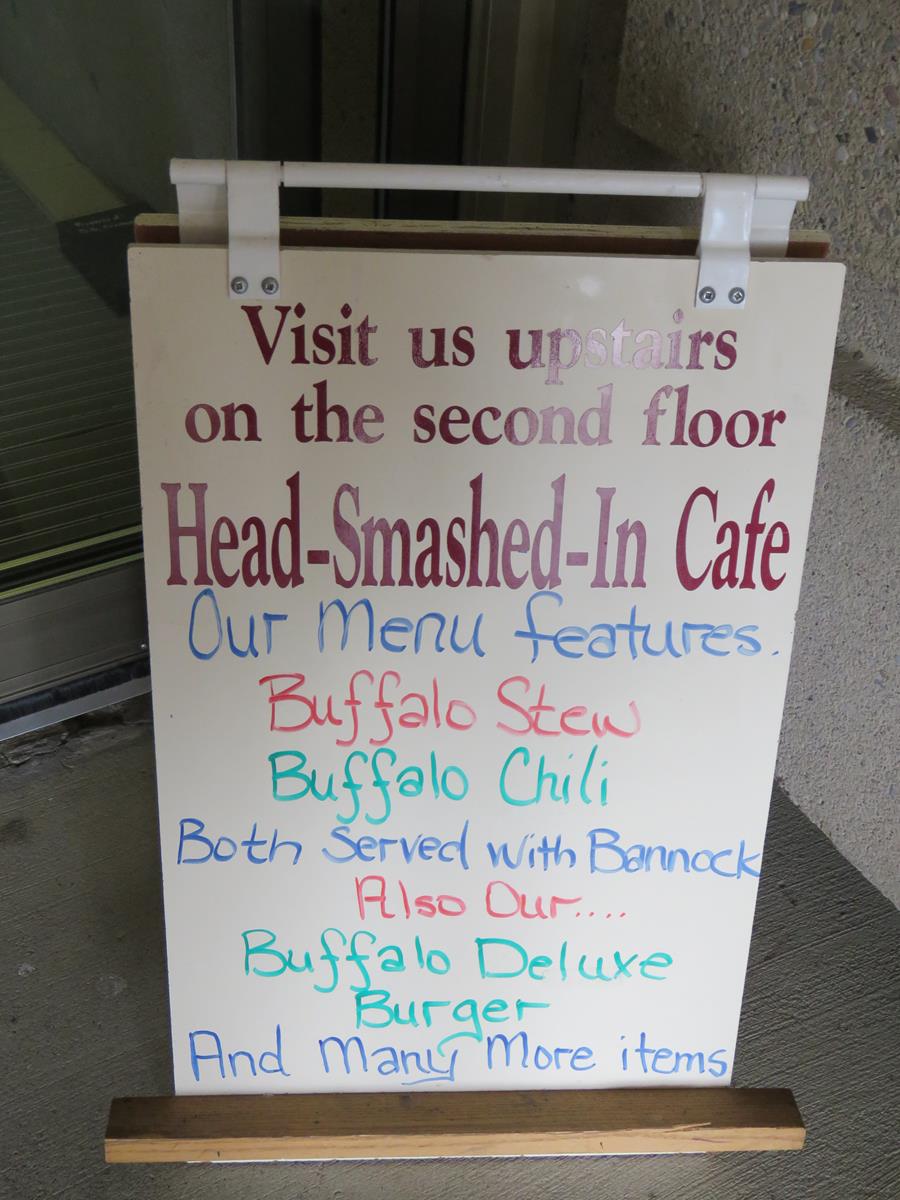 Visit us upstairs
on the second floor
Head-Smashed-In Cafe
Our Menu features.
Buffalo Stew
Buffalo Chili
Both Served with Bannock
Also Our....
Buffalo Deluxe
Burger
And Many More items